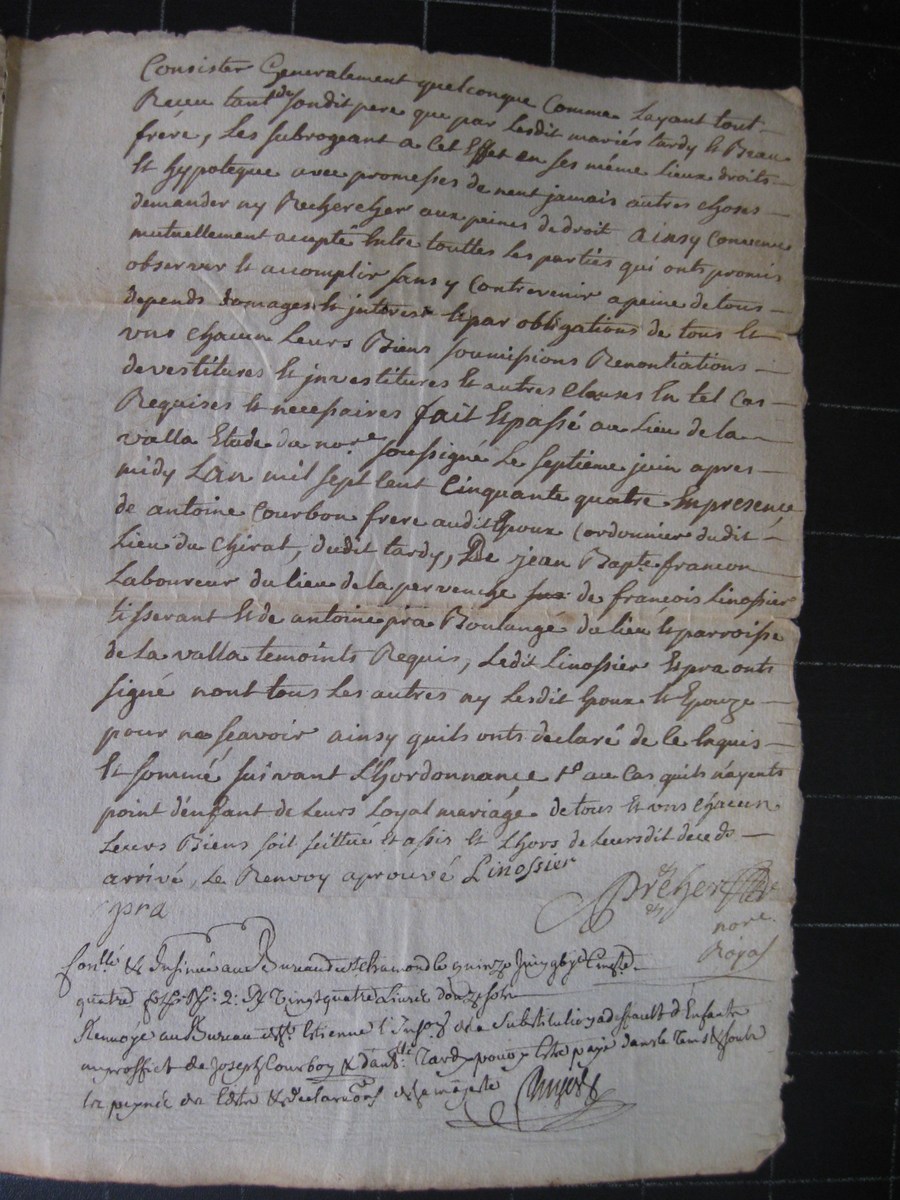 Consister Generalement quelconque Comme Layant tout
Receu tant du sondit pere que par lesdit mariés tardy et Beau
frère, Les subrogeant a Cet Effet en ses même Lieux droits
Et hypoteque avec promesses de nent jamais autres choses
demander ny Rechercher aux peines de droit ainsy Convenu
mutuellement acepté Entre touttes Les parties qui onts promis
observer Et acomplir sans y Contrevenir a peine de tous
depends domages Et interest Et par obligations de tous Et
uns chacun Leurs Biens soumissions Renontiations
devestitures Et investitures Et autres Clauses En tel Cas
Requises Et necessaires fait Et passé au Lieu de la
valla Etude du nore soussigné Le septieme juin apres
midy Lan mil sept Cent Cinquante quatre En presence
de antoine Courbon frere audit Epoux Cordonnier du dit
Lieu du Chirat, dudit tardy, De jean Bapte francon
Laboureur du lieu de la pervenche de francois Linossier
tisserant Et de antoine pra Boulangé du lieu Et parroisse
de La valla temoints Requis, Ledit Linossier Et pra onts
signé nont tous Les autres ny Lesdit Epoux Et Epouze
pour ne sçavoir ainsy quils onts declaré de ce Enquis
Et sommé suivant L'hordonnance au Cas quils n'ayents
point d'enfant de Leurs Loyal mariage de tous Et uns chacun
Leurs Biens soit scittué Et assis Et Lhors de Leursdit deceds
arrivé, Le Renvoy aprouvé Linossier
pra
nore
Royal
au Bureau de St Chamond le quinze juin
quatre vingt quatre Livres
Renvoyé au Bureau de St Etienne substitution a deffault d'Enfants
au proffit de Joseph Courbon Tardy pour y Estre payé dans le Tems